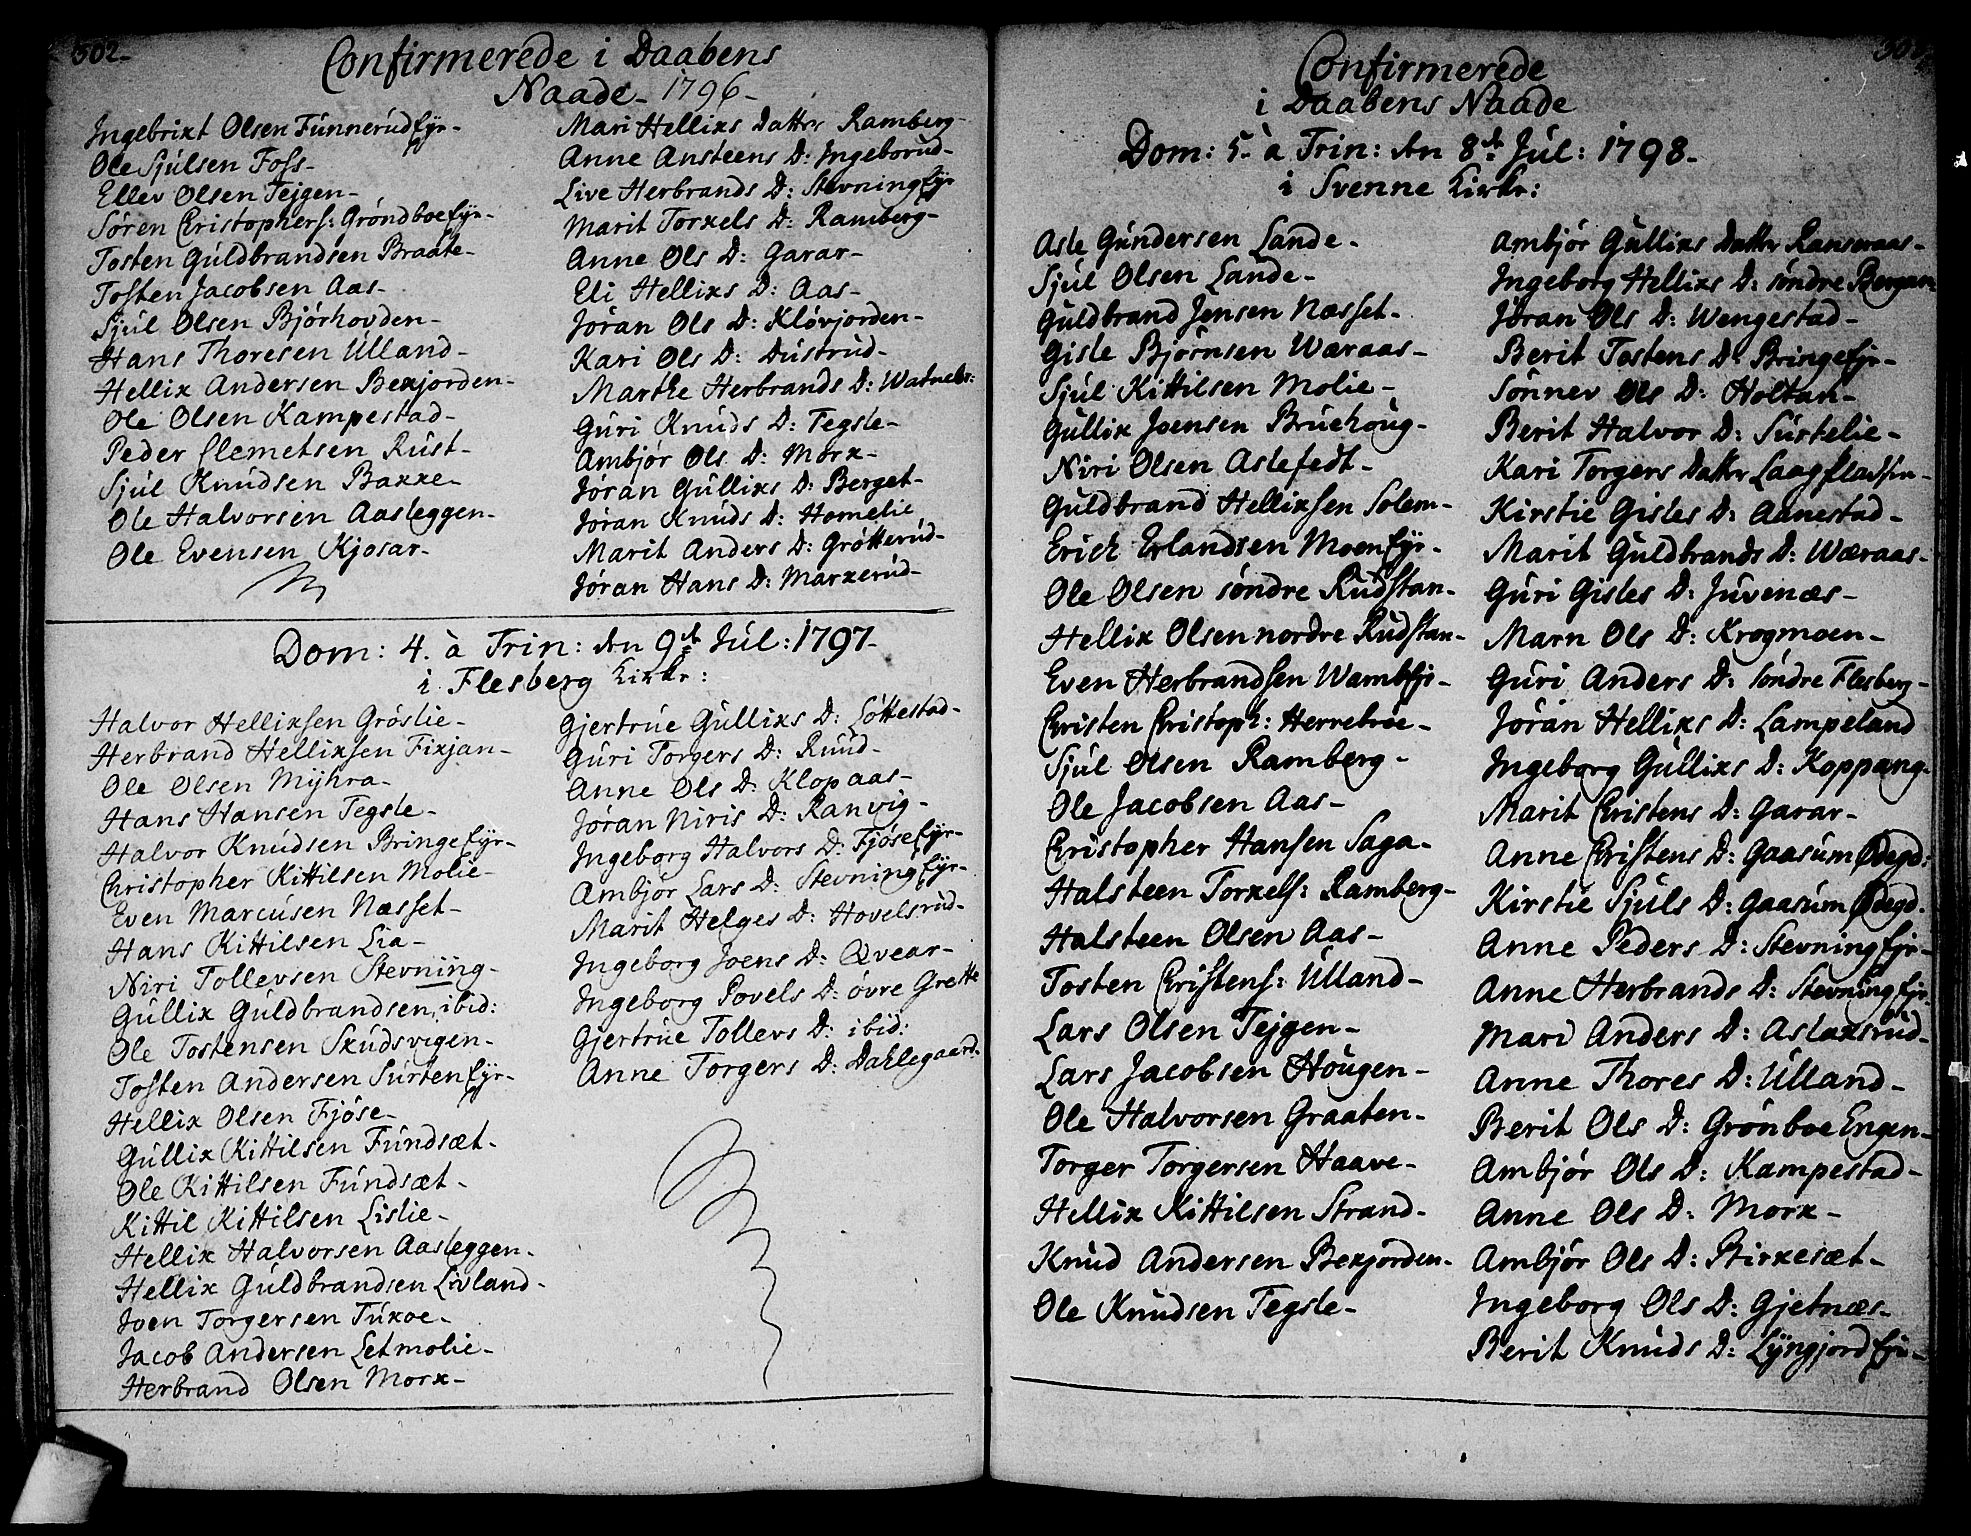 502.
Confirmerede i Daabens
Naade - 1796 -
Ingebrixt Olsen Funnerud Eÿr -
Ole Sjulsen Foss -
Ellev Olsen Tejgen -
Sören Christophers: Gröndboe Eÿr -
Tosten Guldbrandsen Braate -
Tosten Jacobsen Aas -
Sjul Olsen Bjórhovden -
Hans Thoresen Ulland -
Hellix Andersen Bexjorden -
Ole Olsen Kampestad -
Peder Clemetsen Rust -
Sjul Knudsen Baxxe -
Ole Halvorsen Aasleggen -
Ole Evensen Kjosar -
Mari Hellixs Datter Ramberg -
Anne Ansteens D: Ingeborud -
Live Herbrands D: Stevning Eÿr
Marit Torxels D: Ramberg -
Anne Ols D: Garar -
Eli Hellixs D: Aas -
Jóran Ols D: Klóvjorden -
Kari Ols D: Dustrud -
Marthe Herbrands D: Watnebr:
Guri Knuds D: Tegsle -
Ambjór Ols D: Morx -
Jóran Gullixs D: Berget -
Jóran Knuds D: Homelie
Marit Anders D: Grótterud -
Jóran Hans D: Marxerud -
Dom: 4. à Trin: den 9de Jul: 1797 -
i Flesberg Kirke:
Halvor Hellixsen Gróslie -
Herbrand Hellixsen Fixjan -
Ole Olsen Mÿhra -
Hans Hansen Tegsle -
Halvor Knudsen Bringe Eÿr -
Christopher Kittilsen Molie -
Even Marcusen Næsset -
Hans Kittilsen Lia -
Niri Tollevsen Stevning -
Gullix Guldbrandsen, ibid:
Ole Tostensen Skudsvigen -
Tosten Andersen Surten Eÿr -
Hellix Olsen Fjóse -
Gullix Kittilsen Fundsæt -
Ole Kittilsen Fundsæt -
Kittil Kittilsen Lislie -
Hellix Halvorsen Aasleggen -
Hellix Guldbrandsen Livland -
Joen Torgersen Tuxoe -
Jacob Andersen Letmolie -
Herbrand Olsen Morx -
Gjertrue Gullixs D: Lóttestad -
Guri Torgers D: Ruud -
Anne Ols D: Klopaas -
Jóran Niris D: Ranvig -
Ingeborg Halvors D: Fjóse Eÿr -
Ambjór Lars D: Stevning Eÿr -
Marit Helges D: Hovelsrud -
Ingeborg Joens D: Qvear -
Ingeborg Povels D: óvre Grette
Gjertrue Tollevs D: ibid:
Anne Torgers D: Dahlegaard.
Confirmerede
i Daabens Naade
Dom: 5. à Trin: den 8de Jul: 1798 -
i Svenne Kirke:
Asle Gundersen Lande -
Sjul Olsen Lande -
Guldbrand Jensen Næsset -
Gisle Bjórnsen Wæraas -
Sjul Kittilsen Molie -
Gullix Joensen Bruehoug -
Niri Olsen Aslefedt -
Guldbrand Hellixsen Solem -
Erich Erlandsen Moen Eÿr -
Ole Olsen sóndre Rudstan -
Hellix Olsen nordre Rudstan -
Even Herbrandsen Wamb Eÿr -
Christen Christoph: Herrebroe -
Sjul Olsen Ramberg -
Ole Jacobsen Aas -
Christopher Hansen Saga -
Halsteen Torxels: Ramberg -
Halsteen Olsen Aas -
Tosten Christens: Ulland -
Lars Olsen Tejgen -
Lars Jacobsen Hougen -
Ole Halvorsen Graaten -
Torger Torgersen Haave -
Hellix Kittilsen Strand -
Knud Andersen Bexjorden -
Ole Knudsen Tegsle -
Ambjór Gullixs Datter Ransmaas -
Ingeborg Hellixs D: sóndre Bergan
Jóran Ols D: Wengestad -
Berit Tostens D: Bringe Eÿr -
Sónnev Ols D: Holtan -
Berit Halvor D: Surtelie -
Kari Torgers Datter Laagfladsen -
Kirstie Gisles D: Aanestad -
Marit Guldbrands D: Wæraas -
Guri Gisles D: Juvenæs -
Marn Ols D: Krogmoen -
Guri Anders D: sóndre Flesberg -
Jóran Hellixs D: Lampeland
Ingeborg Gullixs D: Koppang -
Marit Christens D: Garar -
Anne Christens D: Gaasum Ødegd:
Kirstie Sjuls D: Gaasum Ødegd.
Anne Peders D: Stevning Eÿr -
Anne Herbrands D: Stevning Eÿr
Mari Anders D: Aslaxsrud -
Anne Thores D: Ulland -
Berit Ols D: Grónboe Engen -
Ambjór Ols D: Kampestad -
Anne Ols D: Morx -
Ambjór Ols D: Birxesæt -
Ingeborg Ols D: Gjetnæs -
Berit Knuds D: Lÿngjord Eÿr -